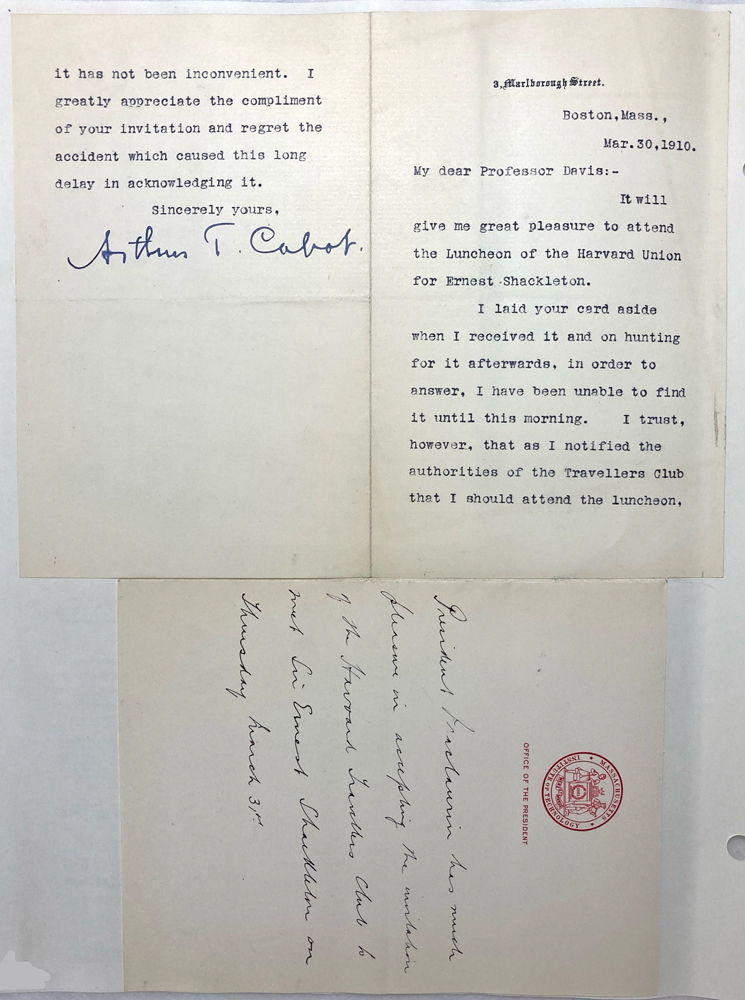 3, Marlborough Street.
Boston,Mass.,
Mar.30,1910.
My dear Professor Davis:-
It will
give me great pleasure to attend
the Luncheon of the Harvard Union
for Ernest Shackleton.
I laid your card aside
when I received it and on hunting
for it afterwards, in order to
answer, I have been unable to find
it until this morning. I trust,
however, that as I notified the
authorities of the Travellers Club
that I should attend the luncheon,
it has not been inconvenient. I
greatly appreciate the compliment
of your invitation and regret the
accident which caused this long
delay in acknowledging it.
Sincerely yours,
Arthur T. Cabot.
MASSACHUSETTS INSTITUTE OF TECHNOLOGY
OFFICE OF THE PRESIDENT
President Maclaurin has much
pleasure in accepting the invitation
of the Harvard Travellers Club to
meet Sir Ernest Shackleton on
Thursday March 31st